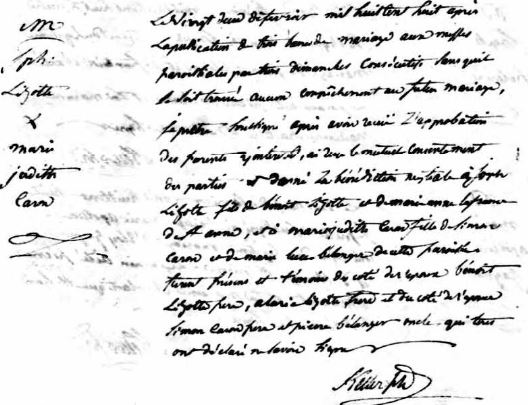 M
jph.
Lizotte
&
mari
judith
Caron
Le vingt deux de fevrier mil huit cent huit après
la publication de trois bans de mariage aux messes
paroissiales par trois dimanches Consecutifs sans quil
se soit trouvé aucun empêchement au futur mariage,
je prêtre soussigné après avoir recu L'approbation
des parents ai recu le mutuel Consentement
des parties & donné la bénédiction nuptiale à joseph
Lizotte fils de bénoit Lizotte et de marie anne lefrancois
de Ste anne, et à marie judith Caron fille de Simon
Caron et de marie Luce bélanger de cette paroisse
furent présens et témoins du coté de l'epoux bénoit
Lizotte pere, alexis Lizotte frere et du coté de l'epouse
Simon Caron pere et pierre bélanger oncle qui tous
ont déclaré ne savoir signer
Keller ptr